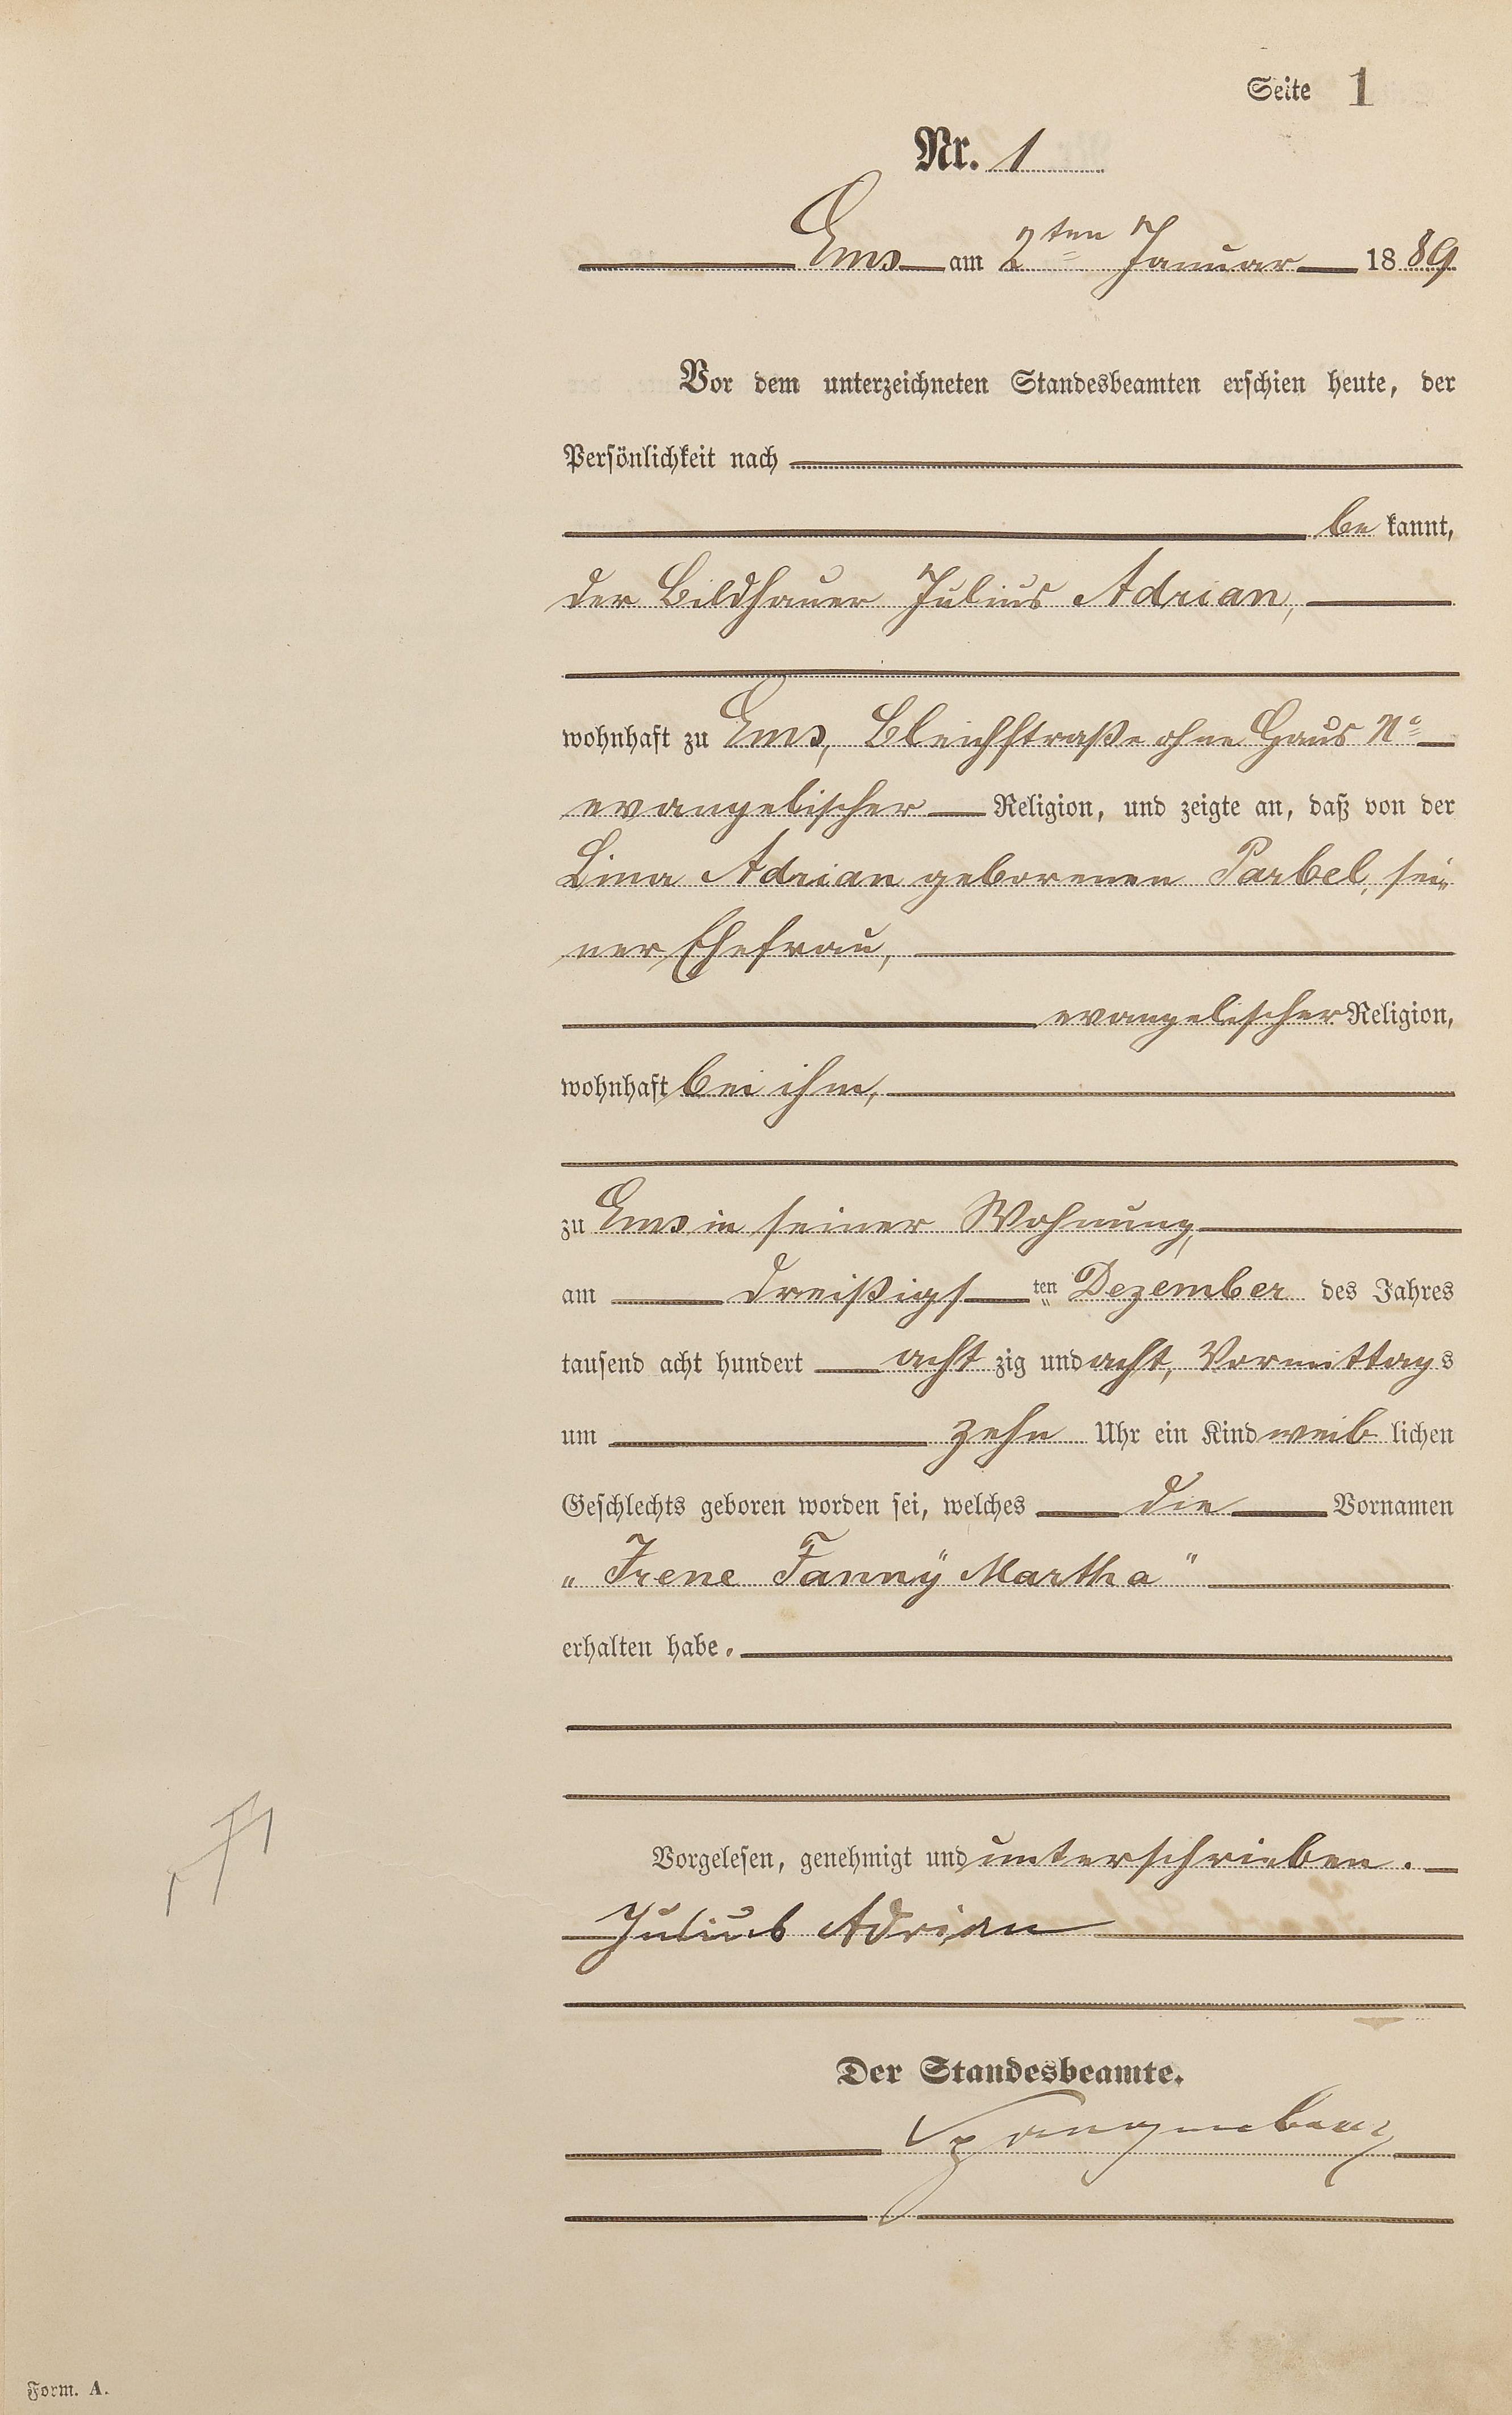 Seite 1
Nr. 1
Ems am 2ten Januar 1889
Vor dem unterzeichneten Standesbeamten erschien heute, der
Persönlichkeit nach
be kannt,
der Bildhauer Julius Adrian,
wohnhaft zu Ems, Bleichstraße ohne Haus No
evangelischer Religion, und zeigte an, daß von der
Lina Adrian geborenen Parbel, sei-
ner Ehefrau,
evangelischer Religion,
wohnhaft bei ihm,
zu Ems in seiner Wohnung,
am dreißigsten Dezember des Jahres
tausend acht hundert acht zig und acht, Vormittags
um zehn Uhr ein Kind weib lichen
Geschlechts geboren worden sei, welches die Vornamen
„Irene Fanny Martha"
erhalten habe.
Vorgelesen, genehmigt und unterschrieben.
Julius Adrian
Der Standesbeamte.
Form. A.